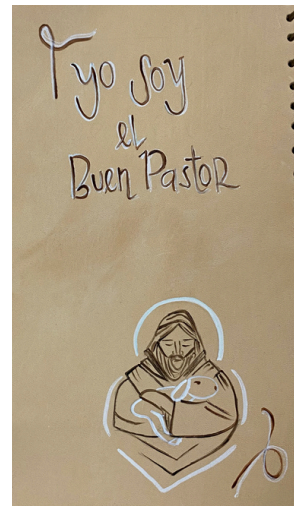 yo soy
el
Buen Pastor